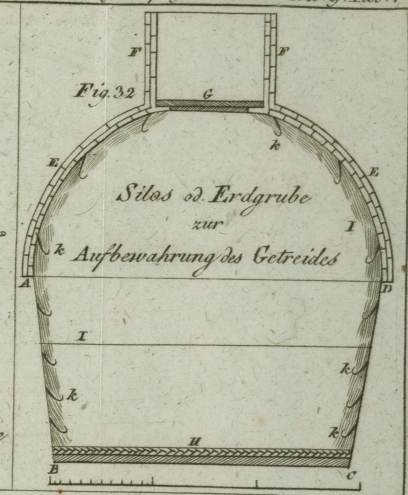 F F
Fig. 32 G
k
E E
Silos od. Erdgrube
I
zur
k Aufbewahrung des Getreides
A D
I
k
k
H k
B C